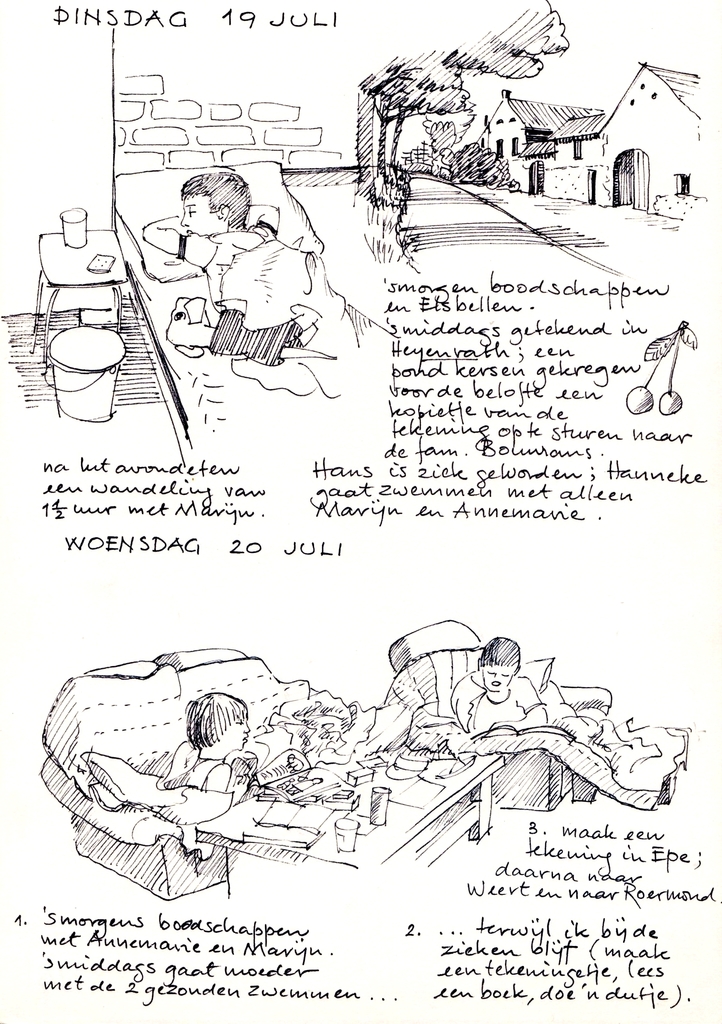 DINSDAG 19 JULI
'smorgen boodschappen
en Etsbellen.
'smiddags getekend in
Heyenrath; een
pond kersen gekregen
voor de belofte een
kopietje van de
tekening op te sturen naar
de fam. Boumans.
na het avondeten
een wandeling van
1½ uur met Marijn.
Hans is ziek geworden; Hanneke
gaat zwemmen met alleen
Marijn en Annemarie.
WOENSDAG 20 JULI
1. 'smorgens boodschappen
met Annemarie en Marijn.
'smiddags gaat moeder
met de 2 gezonden zwemmen ...
2. ... terwijl ik bij de
zieken blijf (maak
een tekeningetje, lees
een boek, doe 'n dutje).
3. maak een
tekening in Epe;
daarna naar
Weert en naar Roermond.